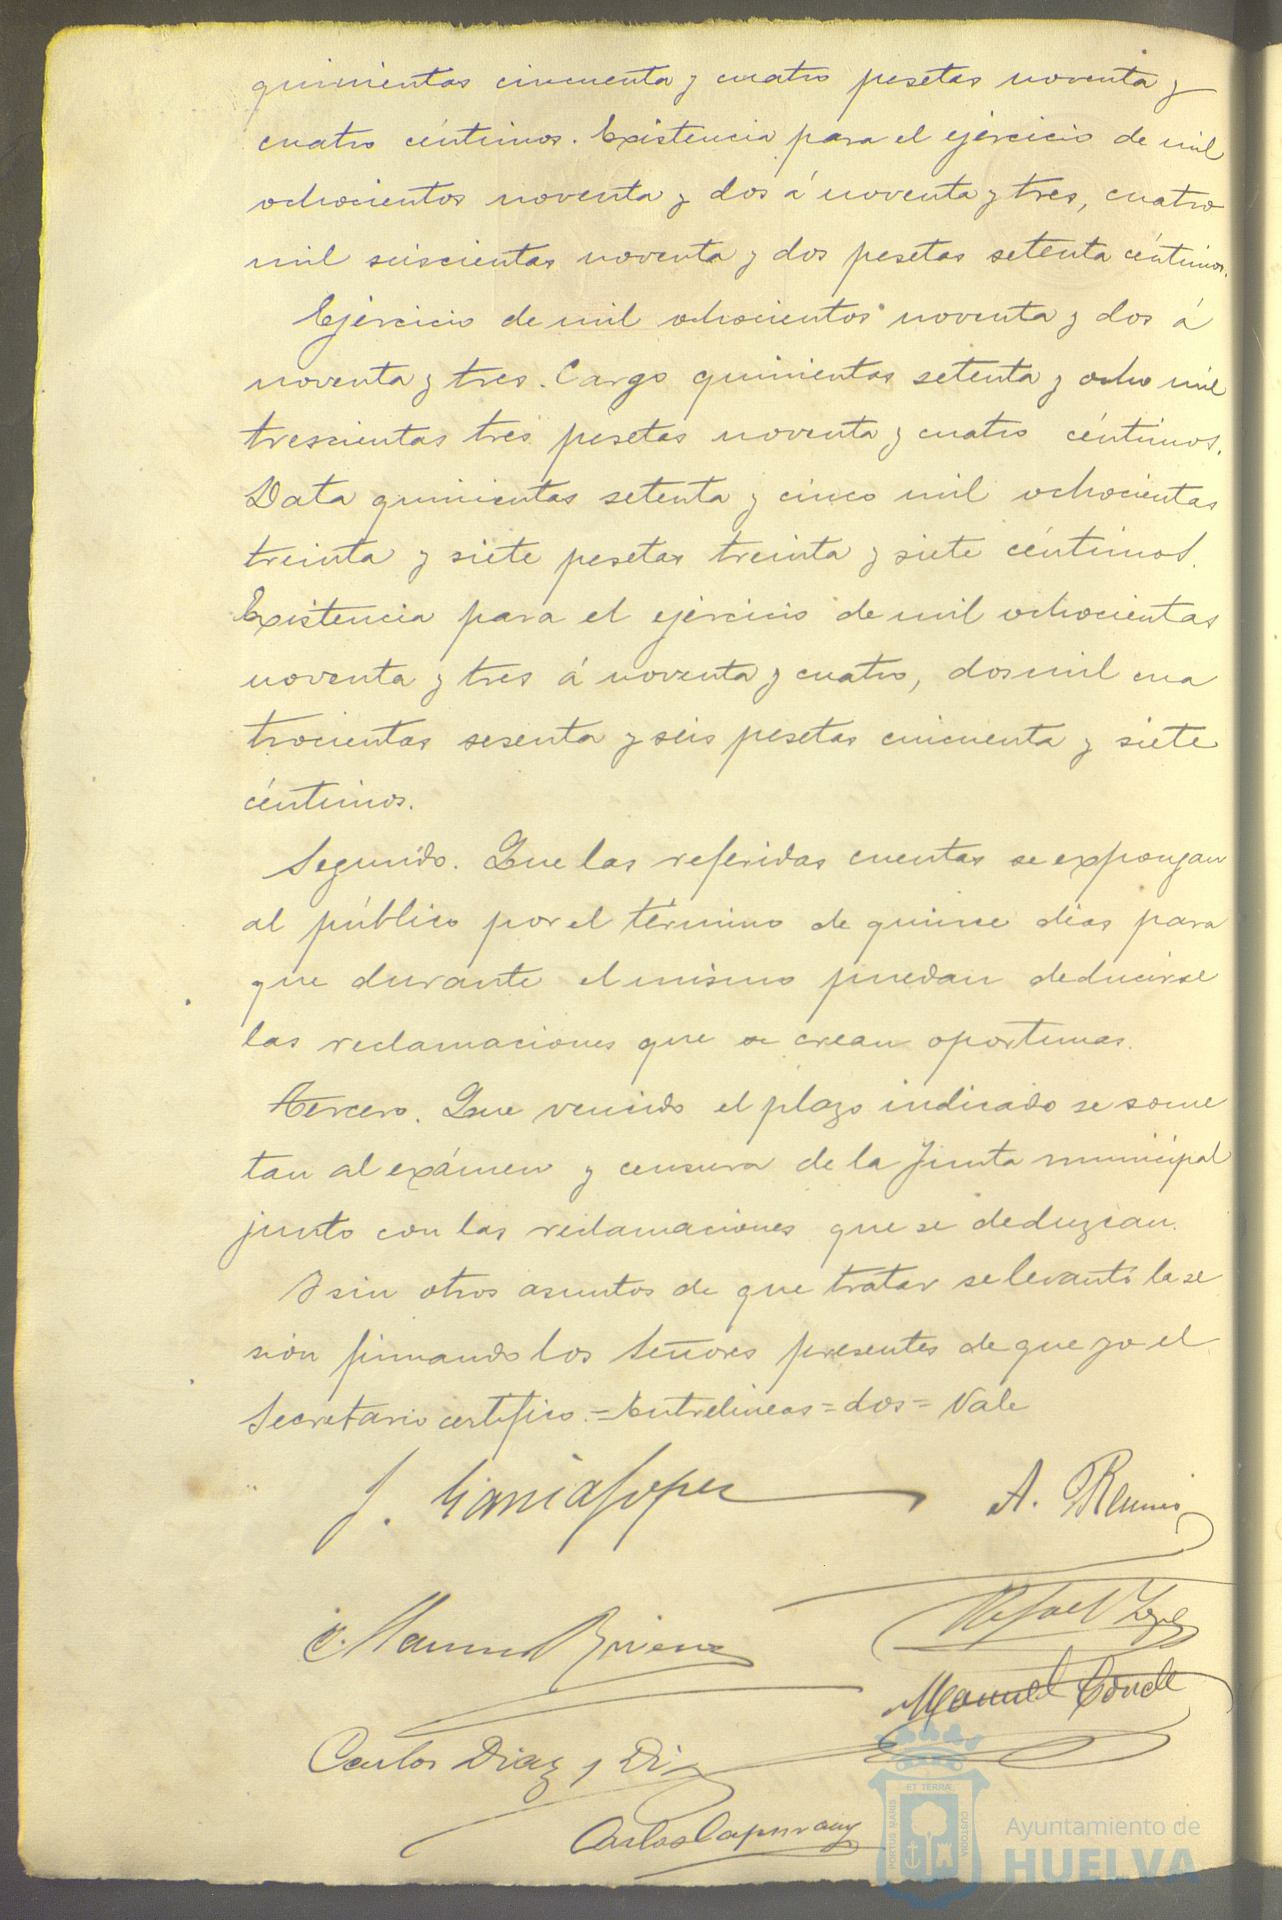 quinientas cincuenta y cuatro pesetas noventa y
cuatro céntimos. Existencia para el ejercicio de mil
ochocientos noventa y dos á noventa y tres, cuatro
mil seiscientas noventa y dos pesetas setenta céntimos.
Ejercicio de mil ochocientos noventa y dos á
noventa y tres. Cargo quinientas setenta y ocho mil
trescientas tres pesetas noventa y cuatro céntimos.
Data quinientas setenta y cinco mil ochocientas
treinta y siete pesetas treinta y siete céntimos.
Existencia para el ejercicio de mil ochocientas
noventa y tres á noventa y cuatro, dos mil cua
trocientas sesenta y seis pesetas cincuenta y siete
céntimos.
Segundo. Que las referidas cuentas se expongan
al público por el término de quince dias para
que durante el mismo puedan deducirse
las reclamaciones que se crean oportunas.
Tercero. Que vencido el plazo indicado se some
tan al exámen y censura de la Junta municipal
junto con las reclamaciones que se deduzcan.
Y sin otros asuntos de que tratar se levantó la se
sión firmando los Señores presentes de que yo el
Secretario certifico.=Entrelineas=dos=Vale
J. García López
A.
Rafael
Manuel
Manuel Conde
Carlos Diaz y
Carlos
PORTUS MARIS
ET TERRAE
CUSTODIA
Ayuntamiento de
HUELVA